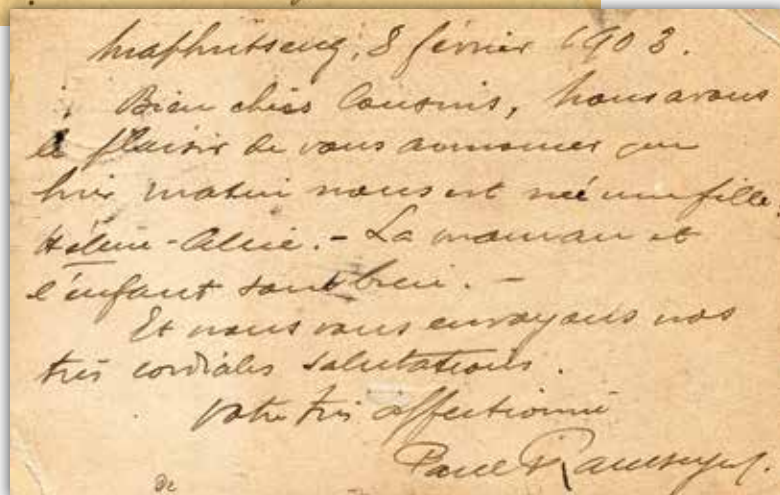 Maphutseng, 8 février 1903.
Bien chers Cousins, Nous avons
le plaisir de vous annoncer que
hier matin nous est née une fille,
Hélène-Alice. - La maman et
l'enfant sont bien. -
Et nous vous envoyons nos
très cordiales salutations.
Votre très affectionné
Paul Ramseyer.
de